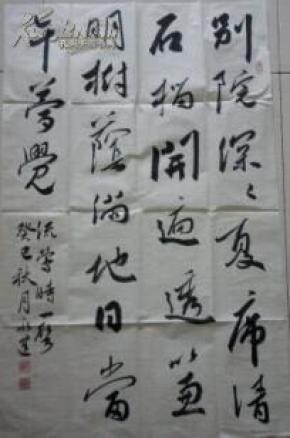 别院深〻夏席清
石榴開遍透簾
明樹蔭滿地日當
午夢覺
流鶯時一聲
癸巳秋月